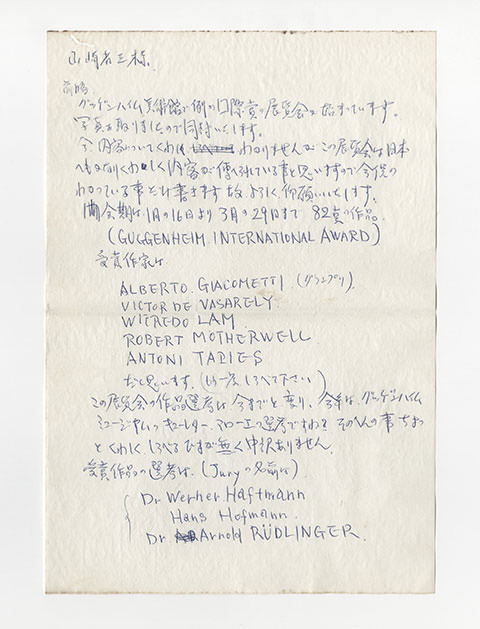 山崎省三様
前略
グッゲンハイム美術館で例の国際賞の展覧会が始まっています。
写真を取りましたので同封いたします。
今、内容についてくわしく わかりませんが この展覧会は日本
へもかなりくわしく内容が伝へられている事と思いますので今僕の
わかっている事だけ書きます故 よろしく御願いいたします。
開会期は1月の16日より3月の29日まで 82点の作品。
(GUGGENHEIM INTERNATIONAL AWARD)
受賞作家は
ALBERTO GIACOMETTI (グランプリ)
VICTOR DE VASARELY.
WIFREDO LAM.
ROBERT MOTHERWELL
ANTONI TAPIES
だと思います。(もう一度しらべて下さい)
この展覧会の作品選考は今までと変り、今年は、グッゲンハイム
ミュージヤムのキューレター、アローエの選考ですが そのへんの事ちょっ
とくわしくしらべるひまが無く申訳ありません。
受賞作品の選考は、(Juryの名前は)
Dr Werner Haftmann
Hans Hofmann.
Dr Arnold RÜDLINGER.